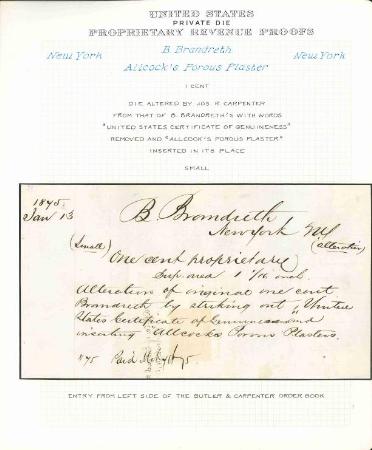 UNITED STATES
PRIVATE DIE
PROPRIETARY REVENUE PROOFS
New York B. Brandreth New York
Allcock's Porous Plaster
1 CENT
DIE ALTERED BY JOS. R. CARPENTER
FROM THAT OF B. BRANDRETH'S WITH WORDS
"UNITED STATES CERTIFICATE OF GENUINENESS"
REMOVED AND "ALLCOCK'S POROUS PLASTER"
INSERTED IN ITS PLACE
SMALL
1875
Jan 13 B Brandreth
New York NY
(Small) (alteration)
One cent proprietary
Sup area 1 7/16 inch
Alteration of original one cent
Brandreth by striking out "United
States Certificate of Genuineness and
inserting Allcocks Porous Plasters.
Paid
ENTRY FROM LEFT SIDE OF THE BUTLER & CARPENTER ORDER BOOK